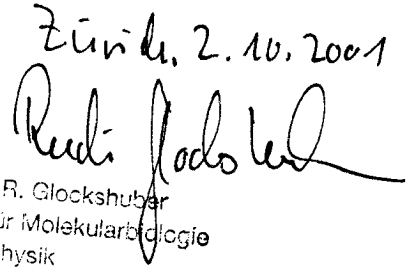 Zürich, 2.10.2001
Rudi Glockshuber
R. Glockshuber
ür Molekularbiologie
hysik